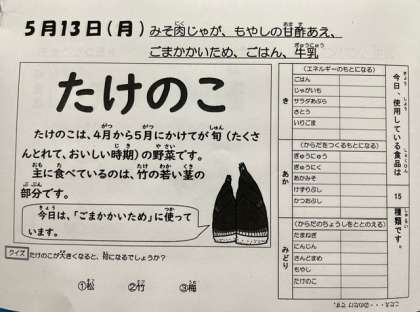 5月13日(月) みそ肉じゃが、もやしの甘酢あえ、
ごまかかいため、ごはん、牛乳
たけのこ
たけのこは、4月から5月にかけてが旬(たくさ
んとれて、おいしい時期)の野菜です。
主に食べているのは、竹の若い茎の
部分です。
今日は、「ごまかかいため」に使って
います。
クイズ
たけのこが大きくなると、何になるでしょうか?
①松 ②竹 ③梅
今日、使用している食品は 15 種類です。
き
(エネルギーのもとになる)
ごはん
じゃがいも
サラダあぶら
さとう
いりごま
あか
(からだをつくるもとになる)
ぎゅうにゅう
ぎゅうにく
あかみそ
けずりぶし
かつおぶし
みどり
(からだのちょうしをととのえる)
たまねぎ
にんじん
さんどまめ
もやし
たけのこ
こたえ・・・②のたけです。